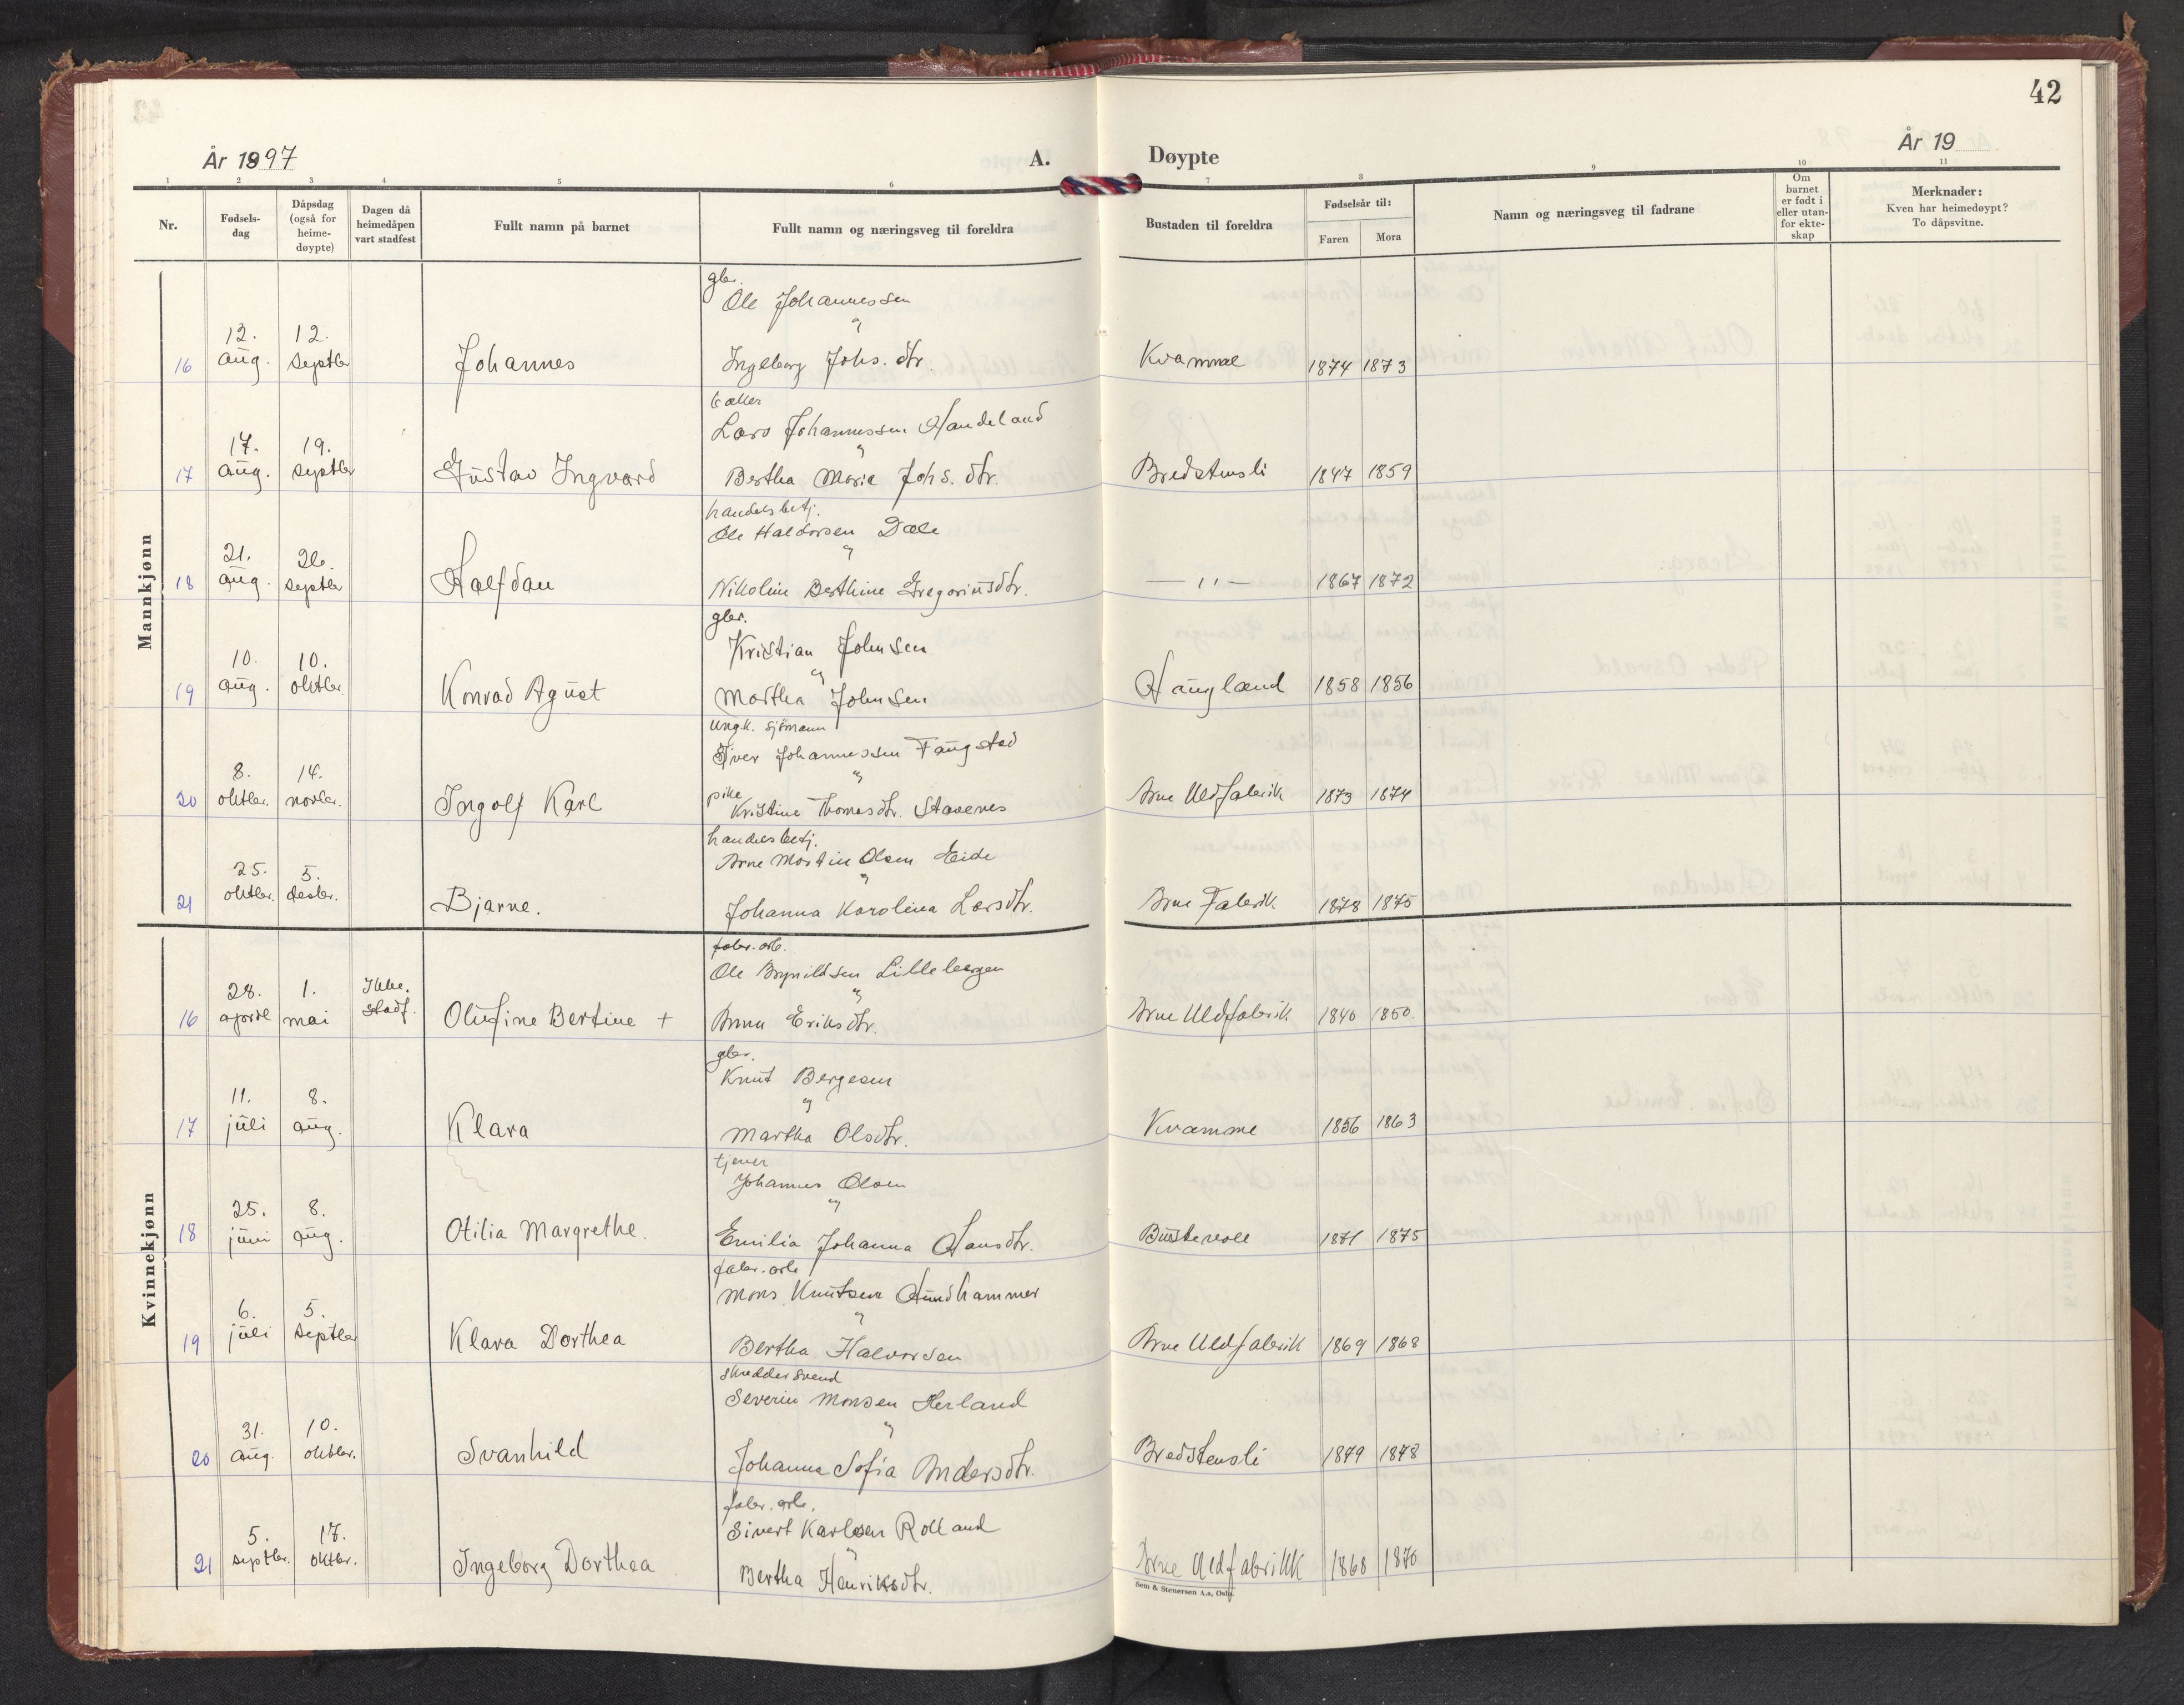 42
År 1897
A.
Døypte
År 19
1 2 3 4 5 6 7 8 9 10 11
Nr.
Fødsels-
dag
Dåpsdag
(også for
heime-
døypte)
Dagen då
heimedåpen
vart stadfest
Fullt namn på barnet
Fullt namn og næringsveg til foreldra
Bustaden til foreldra
Fødselsår til:
Faren Mora
Namn og næringsveg til fadrane
Om
barnet
er født i
eller utan-
for ekte-
skap
Merknader:
Kven har heimedøypt?
To dåpsvitne.
Mannkjønn
gbr.
Ole Johannessen
og
12. 12.
16 aug. septbr Johannes Ingeborg Johs. dtr. Kvamme 1874 1873
bakker
Lars Johannessen Haudeland
og
17. 19.
17 aug. septbr Gustav Ingvard Bertha Marie Johs. dtr. Bredstensli 1847 1859
handelsbetj.
Ole Haldorsen Dale
og
21. 26.
18 aug. septbr Halfdan Nikoline Berthine Gregoriusdtr. — " — 1867 1872
gbr.
Kristian Johnsen
og
10. 10.
19 aug. oktbr. Konrad Agust Martha Johnsen Haugland 1858 1856
ungk. sjömann
Iver Johannessen Faugstad
og
8. 14.
20 oktbr. novbr. Ingolf Karl pike Kristine Thomasdtr. Stavenes Arne Uldfabrik 1873 1874
handelsbetj.
Arne Martin Olsen Eide
og
25. 5.
21 oktbr. desbr. Bjarne. Johanna Karolina Larsdtr. Arne Fabrik. 1878 1875
Kvinnekjønn
fabr. arb.
Ole Brynildsen Lillebergen
og
28. 1. Ikke.
16 april mai stadf. Olufine Bertine + Anna Eriksdtr. Arne Uldfabrik 1840 1850
gbr.
Knut Bergesen
og
11. 8.
17 juli aug. Klara Martha Olsdtr. Kvamme 1856 1863
tjener
Johannes Olsen
og
25. 8.
18 juni aug. Otilia Margrethe. Emilia Johanna Hansdtr. Bustevoll 1871 1875
fabr. arb
Mons Knutsen Aundhammer
og
6. 5.
19 juli septbr Klara Dorthea Bertha Halvorsen Arne Uldfabrik 1869 1868
skreddersvend
Severin Monsen Herland
og
31. 10.
20 aug. oktbr. Svanhild Johanna Sofia Andersdtr. Bredstensli 1879 1878
fabr. arb.
Sivert Karlsen Rolland
og
5. 17.
21 septbr. oktbr. Ingeborg Dorthea Bertha Henriksdtr. Arne Uldfabrikk 1868 1870
Sem & Stenersen A.s, Oslo.